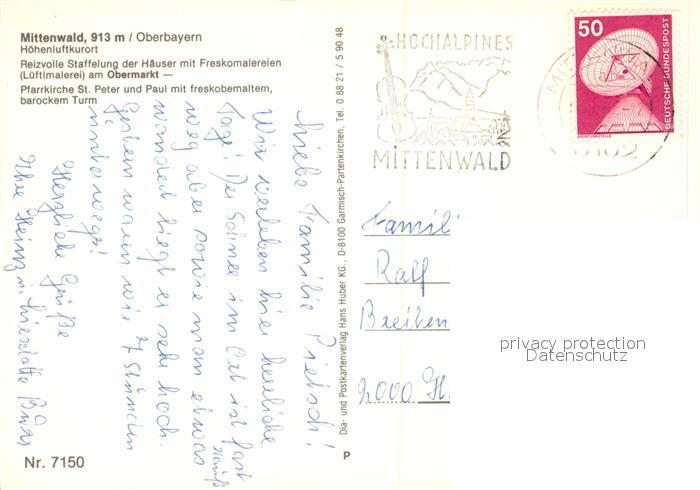 Mittenwald, 913 m / Oberbayern
Höhenluftkurort
Reizvolle Staffelung der Häuser mit Freskomalereien
(Lüftlmalerei) am Obermarkt —
Pfarrkirche St. Peter und Paul mit freskobemaltem,
barockem Turm
Liebe Familie Pietsch!
Wir verleben hier herrliche
Tage! Der Schnee im Ort ist fast
weg aber sowie man etwas
wandert liegt er sehr hoch.
Gestern waren wir 7 Stunden
unterwegs!
Herzliche Grüße
Ihre Heinz u. Lieselotte
Nr. 7150
Dia- und Postkartenverlag Hans Huber KG., D-8100 Garmisch-Partenkirchen, Tel. 0 88 21 / 5 90 48
P
HOCHALPINES
MITTENWALD
50
DEUTSCHE BUNDESPOST
Famil
Ralf
Breiten
2000 H
privacy protection
Datenschutz